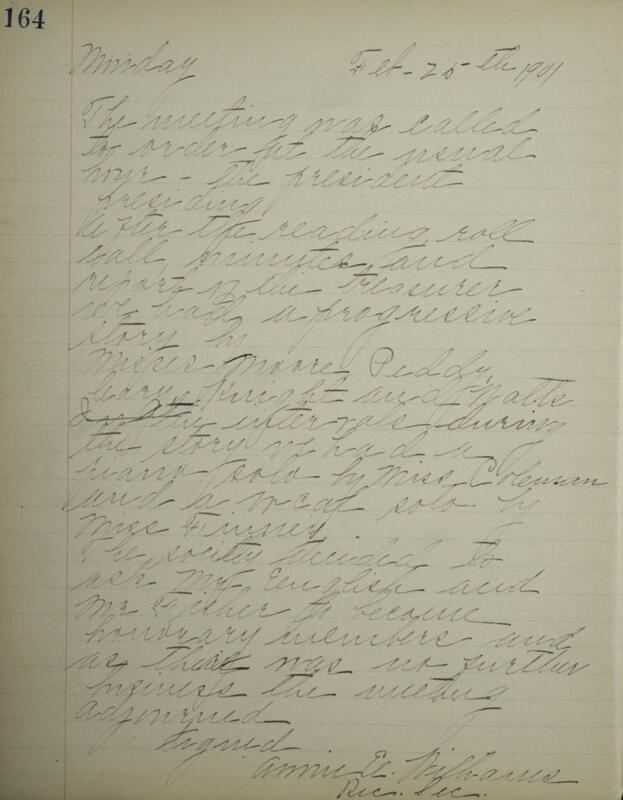 164
Monday Feb - 25th 1901
The meeting was called
to order at the usual
hour - the president
presiding
After the reading, roll
call, minutes, and
report of the treasurer
we had a progressive
story by
Misses Moore, Peddy,
Leary, Knight and Watts
In the intervals during
the story we had a
piano solo by Miss Coleman
and a vocal solo by
Miss Finney.
The society decided to
ask Mr English and
Mr Fisher to become
honorary members and
as there was no further
business the meeting
adjourned
Signed
Annie E. Williams
Rec. Sec.